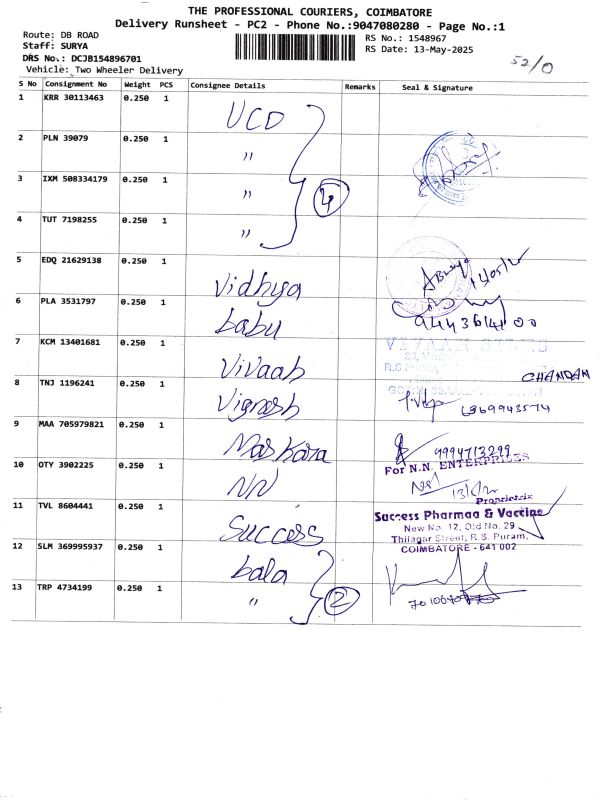 THE PROFESSIONAL COURIERS, COIMBATORE
Delivery Runsheet - PC2 - Phone No.:9047080280 - Page No.:1
Route: DB ROAD
Staff: SURYA
DRS No.: DCJB154896701
Vehicle: Two Wheeler Delivery
RS No.: 1548967
RS Date: 13-May-2025
52/0
S No Consignment No Weight PCS Consignee Details Remarks Seal & Signature
1 KRR 30113463 0.250 1 UCD
2 PLN 39079 0.250 1 "
3 IXM 508334179 0.250 1 " 4
4 TUT 7198255 0.250 1 "
5 EDQ 21629138 0.250 1 Vidhya
6 PLA 3531797 0.250 1 babu
9443614100
7 KCM 13401681 0.250 1 Vivaah
VIVAAH
R.S Puram,
CHANDAN
8 TNJ 1196241 0.250 1 Vignesh
6369943574
9 MAA 705979821 0.250 1 Maskara
9994713299
10 OTY 3902225 0.250 1 NN
For N.N. ENTERPRISES
Proprietrix
11 TVL 8604441 0.250 1 Success
Success Pharmaa & Vaccine
New No. 12, Old No. 29
Thilagar Street, R.S. Puram,
COIMBATORE - 641 002
12 SLM 369995937 0.250 1 bala
13 TRP 4734199 0.250 1 " 2